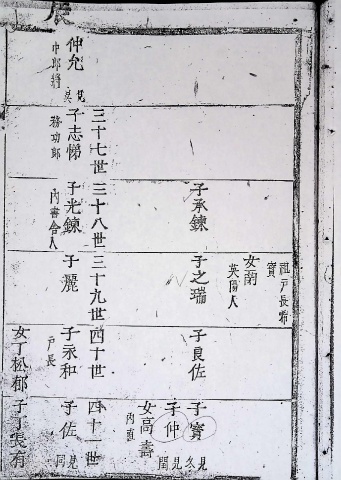 仲允
見
吳
中郎將
三十七世
子志悌
務功郎
三十八世
子承鍊
子光鍊
內書舍人
三十九世
寶
女蘭
英陽人
子之瑞
子灑
四十世
子良佐
子永和
戶長
女丁松都
四十一世
子寶
見
子仲
見
閏
女高壽
內直
子佐
見
同